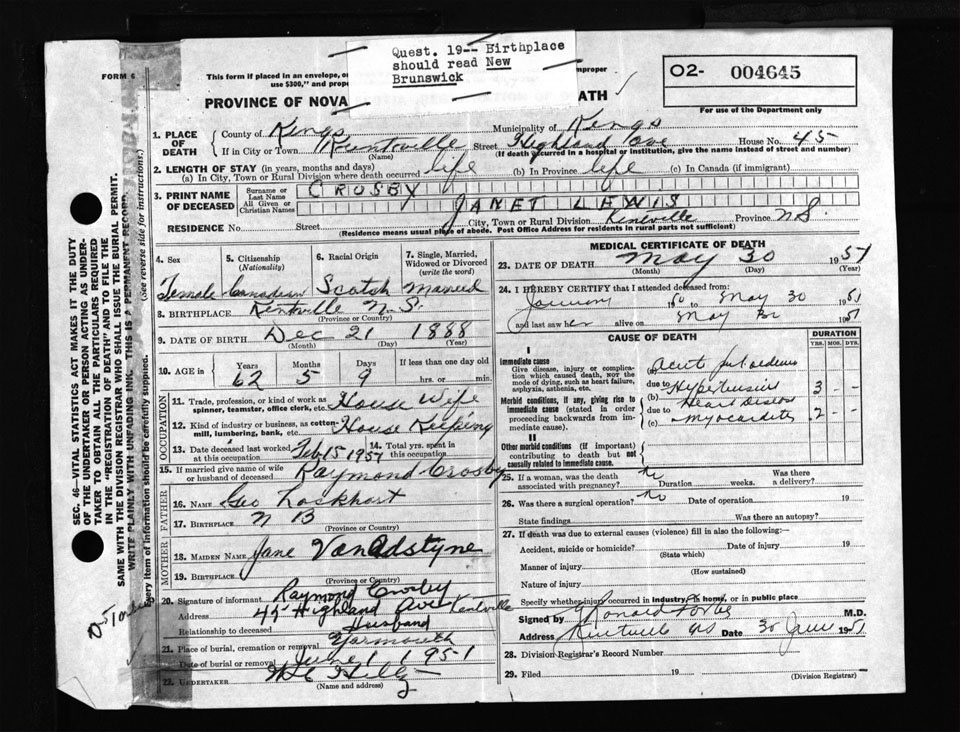 Quest. 19-- Birthplace
should read New
Brunswick
FORM 6
This form if placed in an envelope, or
improper
use $300," and prope
PROVINCE OF NOVA
ATH
O2- 004645
For use of the Department only
1. PLACE OF DEATH
County of Kings Municipality of Kings
If in City or Town Kentville Street Highland Ave House No. 45
(Name) (If death occurred in a hospital or institution, give the name instead of street and number)
2. LENGTH OF STAY (in years, months and days)
(a) In City, Town or Rural Division where death occurred life (b) In Province life (c) In Canada (if immigrant)
3. PRINT NAME OF DECEASED
Surname or Last Name CROSBY
All Given or Christian Names JANET LEWIS
RESIDENCE No. Street City, Town or Rural Division Kentville Province N.S.
(Residence means usual place of abode. Post Office Address for residents in rural parts not sufficient)
4. Sex 5. Citizenship (Nationality) 6. Racial Origin 7. Single, Married, Widowed or Divorced (write the word)
Female Canadian Scotch Married
8. BIRTHPLACE Kentville N.S.
(Province or Country)
9. DATE OF BIRTH Dec 21 1888
(Month) (Day) (Year)
10. AGE in Years Months Days If less than one day old
62 5 9 hrs. or min.
OCCUPATION
11. Trade, profession, or kind of work as spinner, teamster, office clerk, etc. House Wife
12. Kind of industry or business, as cotten-mill, lumbering, bank, etc. House Keeping
13. Date deceased last worked at this occupation Feb 15 1951 14. Total yrs. spent in this occupation
15. If married give name of wife or husband of deceased Raymond Crosby
FATHER
16. NAME Geo Lockhart
17. BIRTHPLACE N B
(Province or Country)
MOTHER
18. MAIDEN NAME Jane VanAdstyne
19. BIRTHPLACE
(Province or Country)
20. Signature of informant Raymond Crosby
Address 45 Highland Ave Kentville
Relationship to deceased Husband
21. Place of burial, cremation or removal Yarmouth
Date of burial or removal June 1 1951
22. UNDERTAKER
(Name and address)
MEDICAL CERTIFICATE OF DEATH
23. DATE OF DEATH May 30 1951
(Month) (Day) (Year)
24. I HEREBY CERTIFY that I attended deceased from:
to May 30 1951
and last saw her alive on May 1951
CAUSE OF DEATH
DURATION
YRS. MOS. DYS.
I
Immediate cause
Give disease, injury or complication which caused death, not the mode of dying, such as heart failure, asphyxia, asthenia, etc.
(a)
due to
(b) Hypertensive 3 - -
Heart Disease
Morbid conditions, if any, giving rise to immediate cause (stated in order proceeding backwards from immediate cause).
due to
(c) Myocarditis 2 - -
II
Other morbid conditions (if important) contributing to death but not causally related to immediate cause.
25. If a woman, was the death associated with pregnancy? no Duration weeks. Was there a delivery?
26. Was there a surgical operation? no Date of operation 19
State findings Was there an autopsy?
27. If death was due to external causes (violence) fill in also the following:—
Accident, suicide or homicide? Date of injury 19
(State which)
Manner of injury
(How sustained)
Nature of injury
Specify whether injury occurred in industry, in home, or in public place
Signed by M.D.
Address Kentville NS Date 30 1951
28. Division Registrar's Record Number
29. Filed 19
(Division Registrar)
SEC. 46—VITAL STATISTICS ACT MAKES IT THE DUTY
OF THE UNDERTAKER OR PERSON ACTING AS UNDER-
TAKER TO OBTAIN ALL THE PARTICULARS REQUIRED
IN THE "REGISTRATION OF DEATH" AND TO FILE THE
SAME WITH THE DIVISION REGISTRAR WHO SHALL ISSUE THE BURIAL PERMIT.
WRITE PLAINLY WITH UNFADING INK. THIS IS A PERMANENT RECORD.
Every item of information should be carefully supplied. (See reverse side for instructions.)